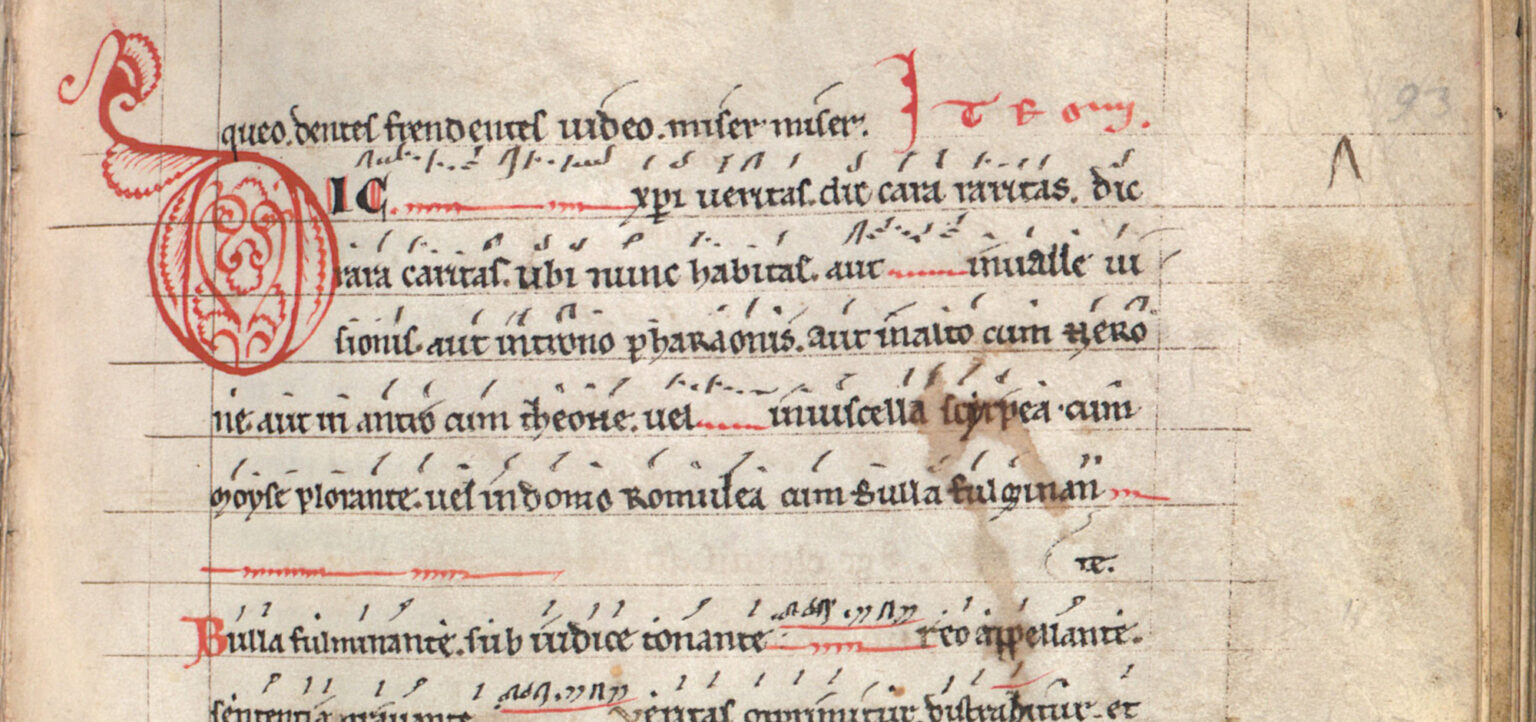 queo. dentes frendentes uideo. miser miser.
DIC xpi ueritas. dic cara raritas. dic
rara caritas. ubi nunc habitas. aut inualle ui
sionis. aut introno pharaonis. aut inalto cum nero
ne. aut in antro cum theone. uel inuiscella scirpea. cum
moyse plorante. uel indomo romulea cum bulla fulminan
te.
Bulla fulminante. sub iudice tonante reo appellante.
sententia grauante ueritas opprimitur. distrahitur. et
93